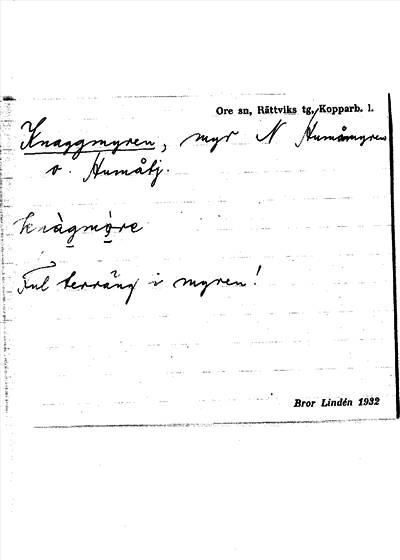 Ore sn, Rättviks tg, Kopparb. l.
Knaggmyren, myr N Humåmyren
o. Humåtj.
knàgmỳre
Ful terräng i myren!
Bror Lindén 1932